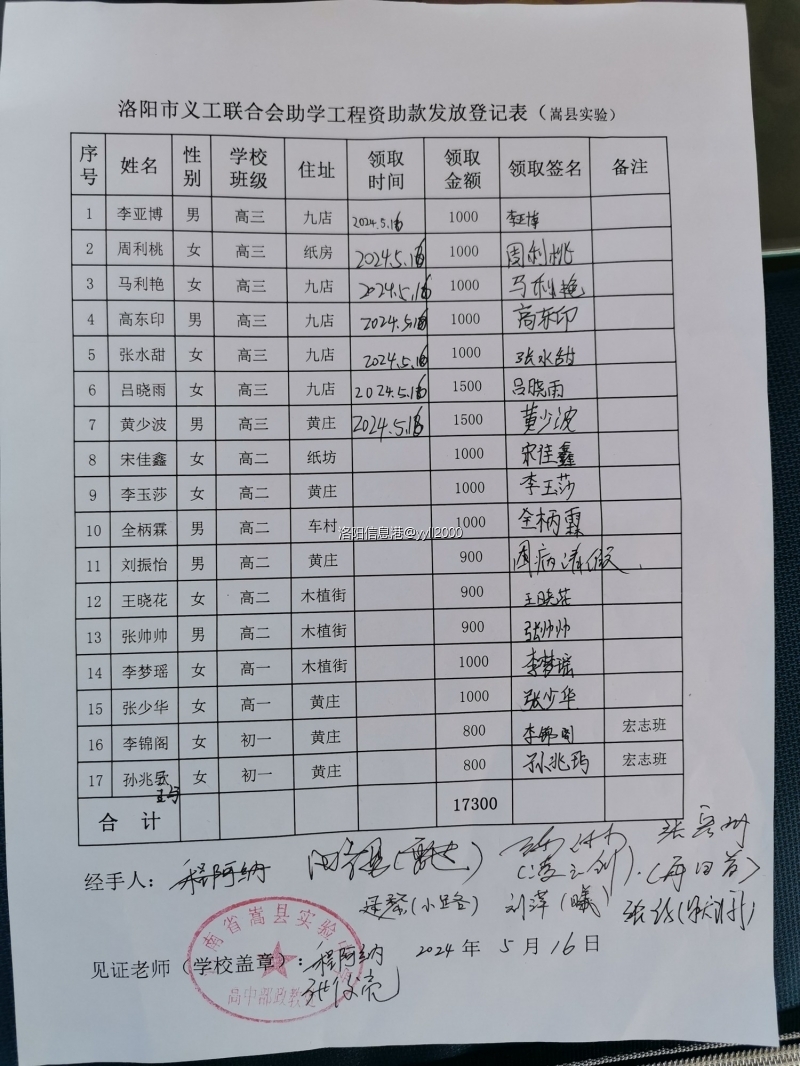 洛阳市义工联合会助学工程资助款发放登记表（嵩县实验）
序号 姓名 性别 学校班级 住址 领取时间 领取金额 领取签名 备注
1 李亚博 男 高三 九店 2024.5.16 1000 李亚博
2 周利桃 女 高三 纸房 2024.5.16 1000 周利桃
3 马利艳 女 高三 九店 2024.5.16 1000 马利艳
4 高东印 男 高三 九店 2024.5.16 1000 高东印
5 张水甜 女 高三 九店 2024.5.16 1000 张水甜
6 吕晓雨 女 高三 九店 2024.5.16 1500 吕晓雨
7 黄少波 男 高三 黄庄 2024.5.16 1500 黄少波
8 宋佳鑫 女 高二 纸坊 1000 宋佳鑫
9 李玉莎 女 高二 黄庄 1000 李玉莎
10 全柄霖 男 高二 车村 1000 全柄霖
洛阳信息港@yyll2000
11 刘振怡 男 高二 黄庄 900 因病请假
12 王晓花 女 高二 木植街 900 王晓花
13 张帅帅 男 高二 木植街 900 张帅帅
14 李梦瑶 女 高一 木植街 1000 李梦瑶
15 张少华 女 高一 黄庄 1000 张少华
16 李锦阁 女 初一 黄庄 800 李锦阁 宏志班
17 孙兆 女 初一 黄庄 800 孙兆玙 宏志班
合 计 17300
经手人： 程阿纳
(小路) 刘萍(曦)
见证老师（学校盖章）： 程阿纳 2024年5月16日
张俊亮
南省嵩县实验
高中部政教